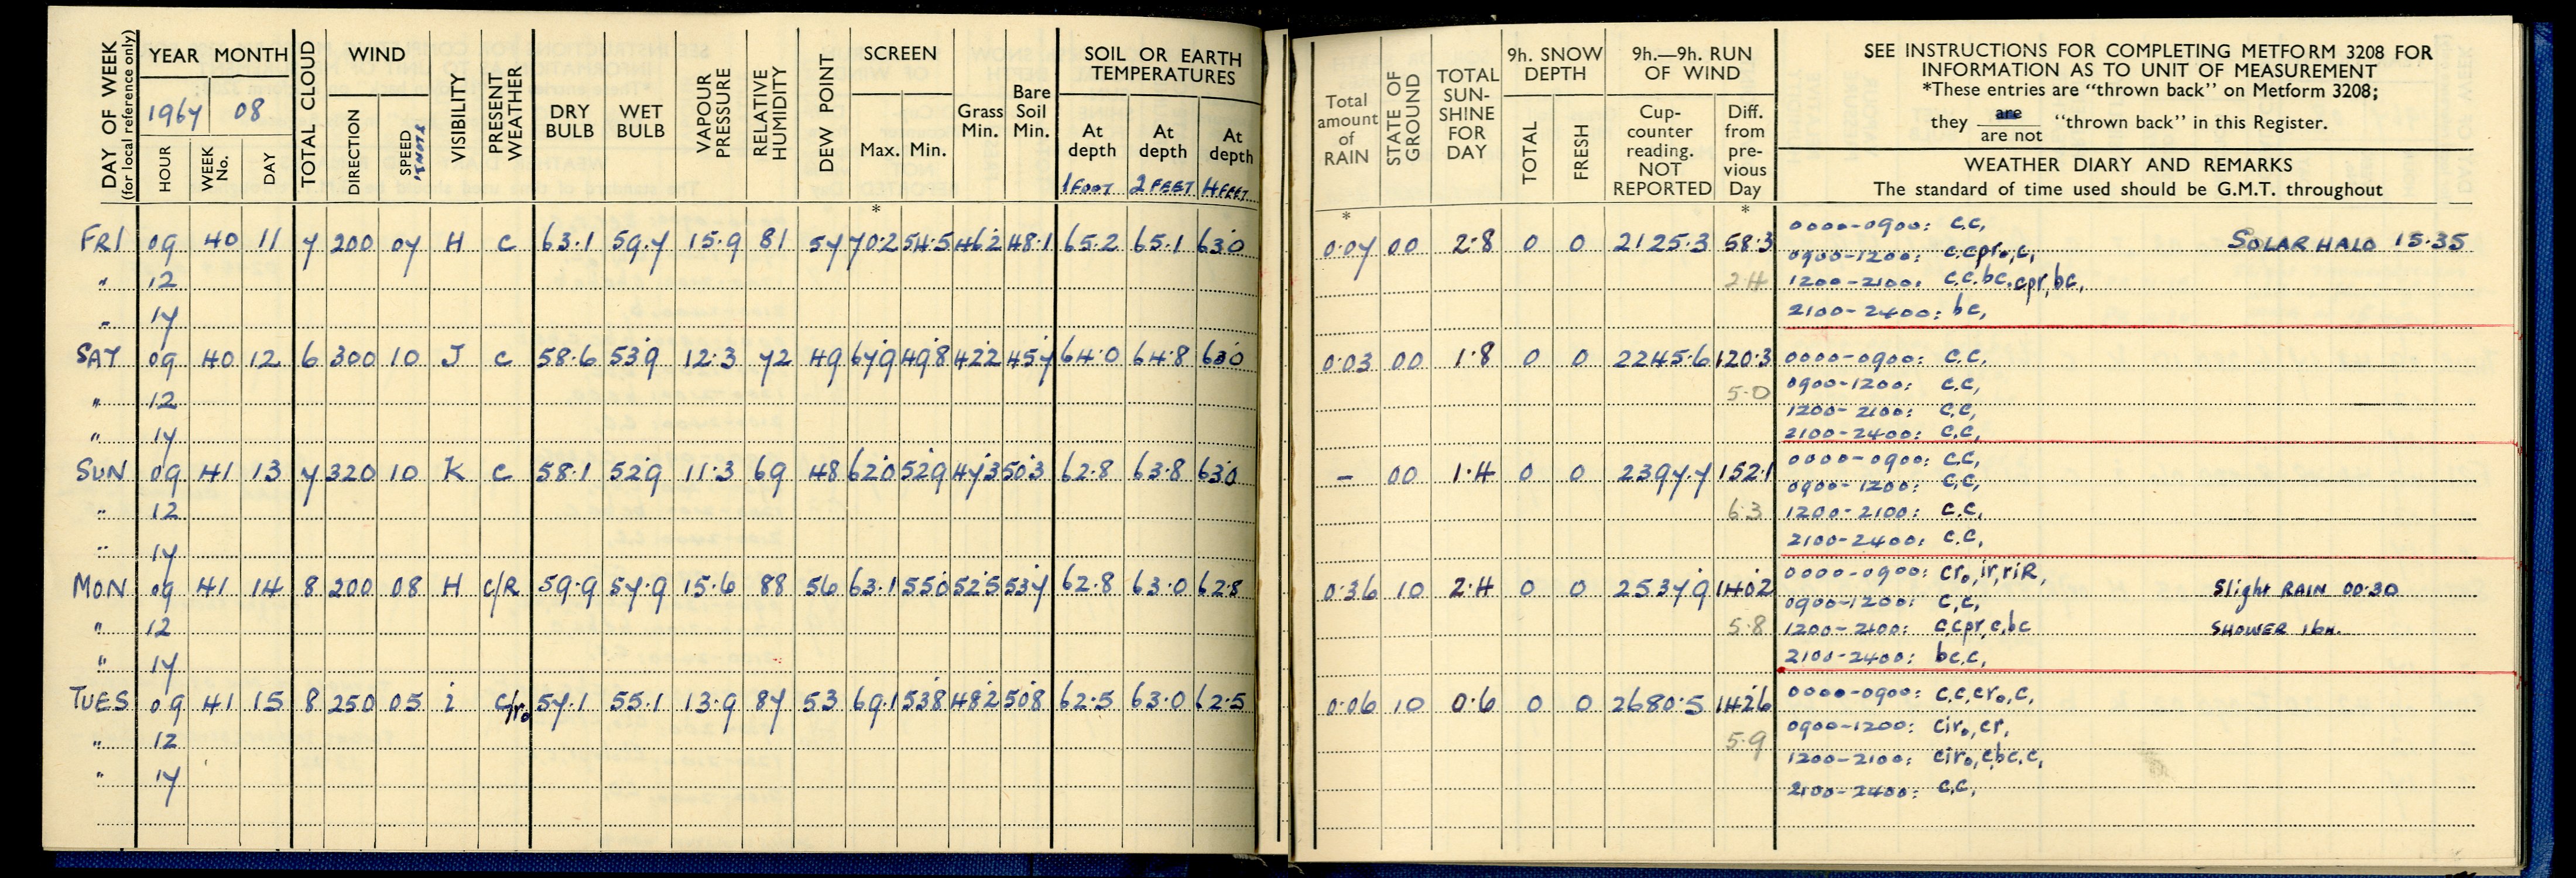 DAY OF WEEK
(for local reference only)
YEAR MONTH
1967 08
HOUR
WEEK No.
DAY
TOTAL CLOUD
WIND
DIRECTION
SPEED
KNOTS
VISIBILITY
PRESENT WEATHER
DRY BULB
WET BULB
VAPOUR PRESSURE
RELATIVE HUMIDITY
DEW POINT
SCREEN
Max. Min.
Grass Min.
Bare Soil Min.
SOIL OR EARTH
TEMPERATURES
At depth At depth At depth
1 FOOT 2 FEET 4 FEET
*
FRI 09 40 11 7 200 07 H c 63.1 59.7 15.9 81 57 70.2 54.5 46.2 48.1 65.2 65.1 63.0
" 12
" 17
SAT 09 40 12 6 300 10 J c 58.6 53.9 12.3 72 49 67.9 49.8 42.2 45.7 64.0 64.8 63.0
" 12
" 17
SUN 09 41 13 7 320 10 K c 58.1 52.9 11.3 69 48 62.0 52.9 47.3 50.3 62.8 63.8 63.0
" 12
" 17
MON 09 41 14 8 200 08 H c/R 59.9 57.9 15.6 88 56 63.1 55.0 52.5 53.7 62.8 63.0 62.8
" 12
" 17
TUES 09 41 15 8 250 05 i c/ro 57.1 55.1 13.9 87 53 69.1 53.8 48.2 50.8 62.5 63.0 62.5
" 12
" 17
Total amount of RAIN
STATE OF GROUND
TOTAL SUN-SHINE FOR DAY
9h. SNOW DEPTH
TOTAL
FRESH
9h.—9h. RUN OF WIND
Cup-counter reading. NOT REPORTED
Diff. from pre-vious Day
SEE INSTRUCTIONS FOR COMPLETING METFORM 3208 FOR
INFORMATION AS TO UNIT OF MEASUREMENT
*These entries are "thrown back" on Metform 3208;
they are / are not "thrown back" in this Register.
WEATHER DIARY AND REMARKS
The standard of time used should be G.M.T. throughout
* *
0.07 00 2.8 0 0 2125.3 58.3
2.4
0000-0900: c.c,
0900-1200: c.cpro,c, SOLAR HALO 15.35
1200-2100: c.c.bc.cpr,bc,
2100-2400: bc,
0.03 00 1.8 0 0 2245.6 120.3
5.0
0000-0900: c.c,
0900-1200: c.c,
1200-2100: c.c,
2100-2400: c.c,
- 00 1.4 0 0 2397.7 152.1
6.3
0000-0900: c.c,
0900-1200: c.c,
1200-2100: c.c,
2100-2400: c.c,
0.36 10 2.4 0 0 2537.9 140.2
5.8
0000-0900: cro,ir,riR,
0900-1200: c,c, Slight RAIN 00.30
1200-2100: c.cpr,c,bc SHOWER 16H.
2100-2400: bc.c,
0.06 10 0.6 0 0 2680.5 142.6
5.9
0000-0900: c.c,cro,c,
0900-1200: ciro,cr,
1200-2100: ciro,cbc.c,
2100-2400: c.c,